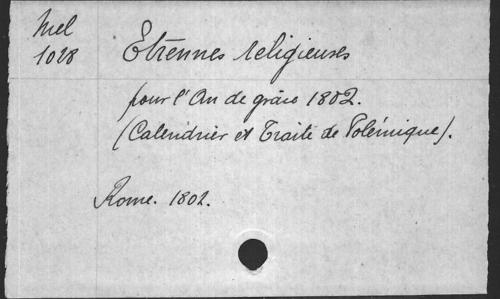 Mel
1028
Etrennes religieuses
pour l'An de grâce 1802.
(Calendrier et Traité de Polémique).
Rome. 1802.